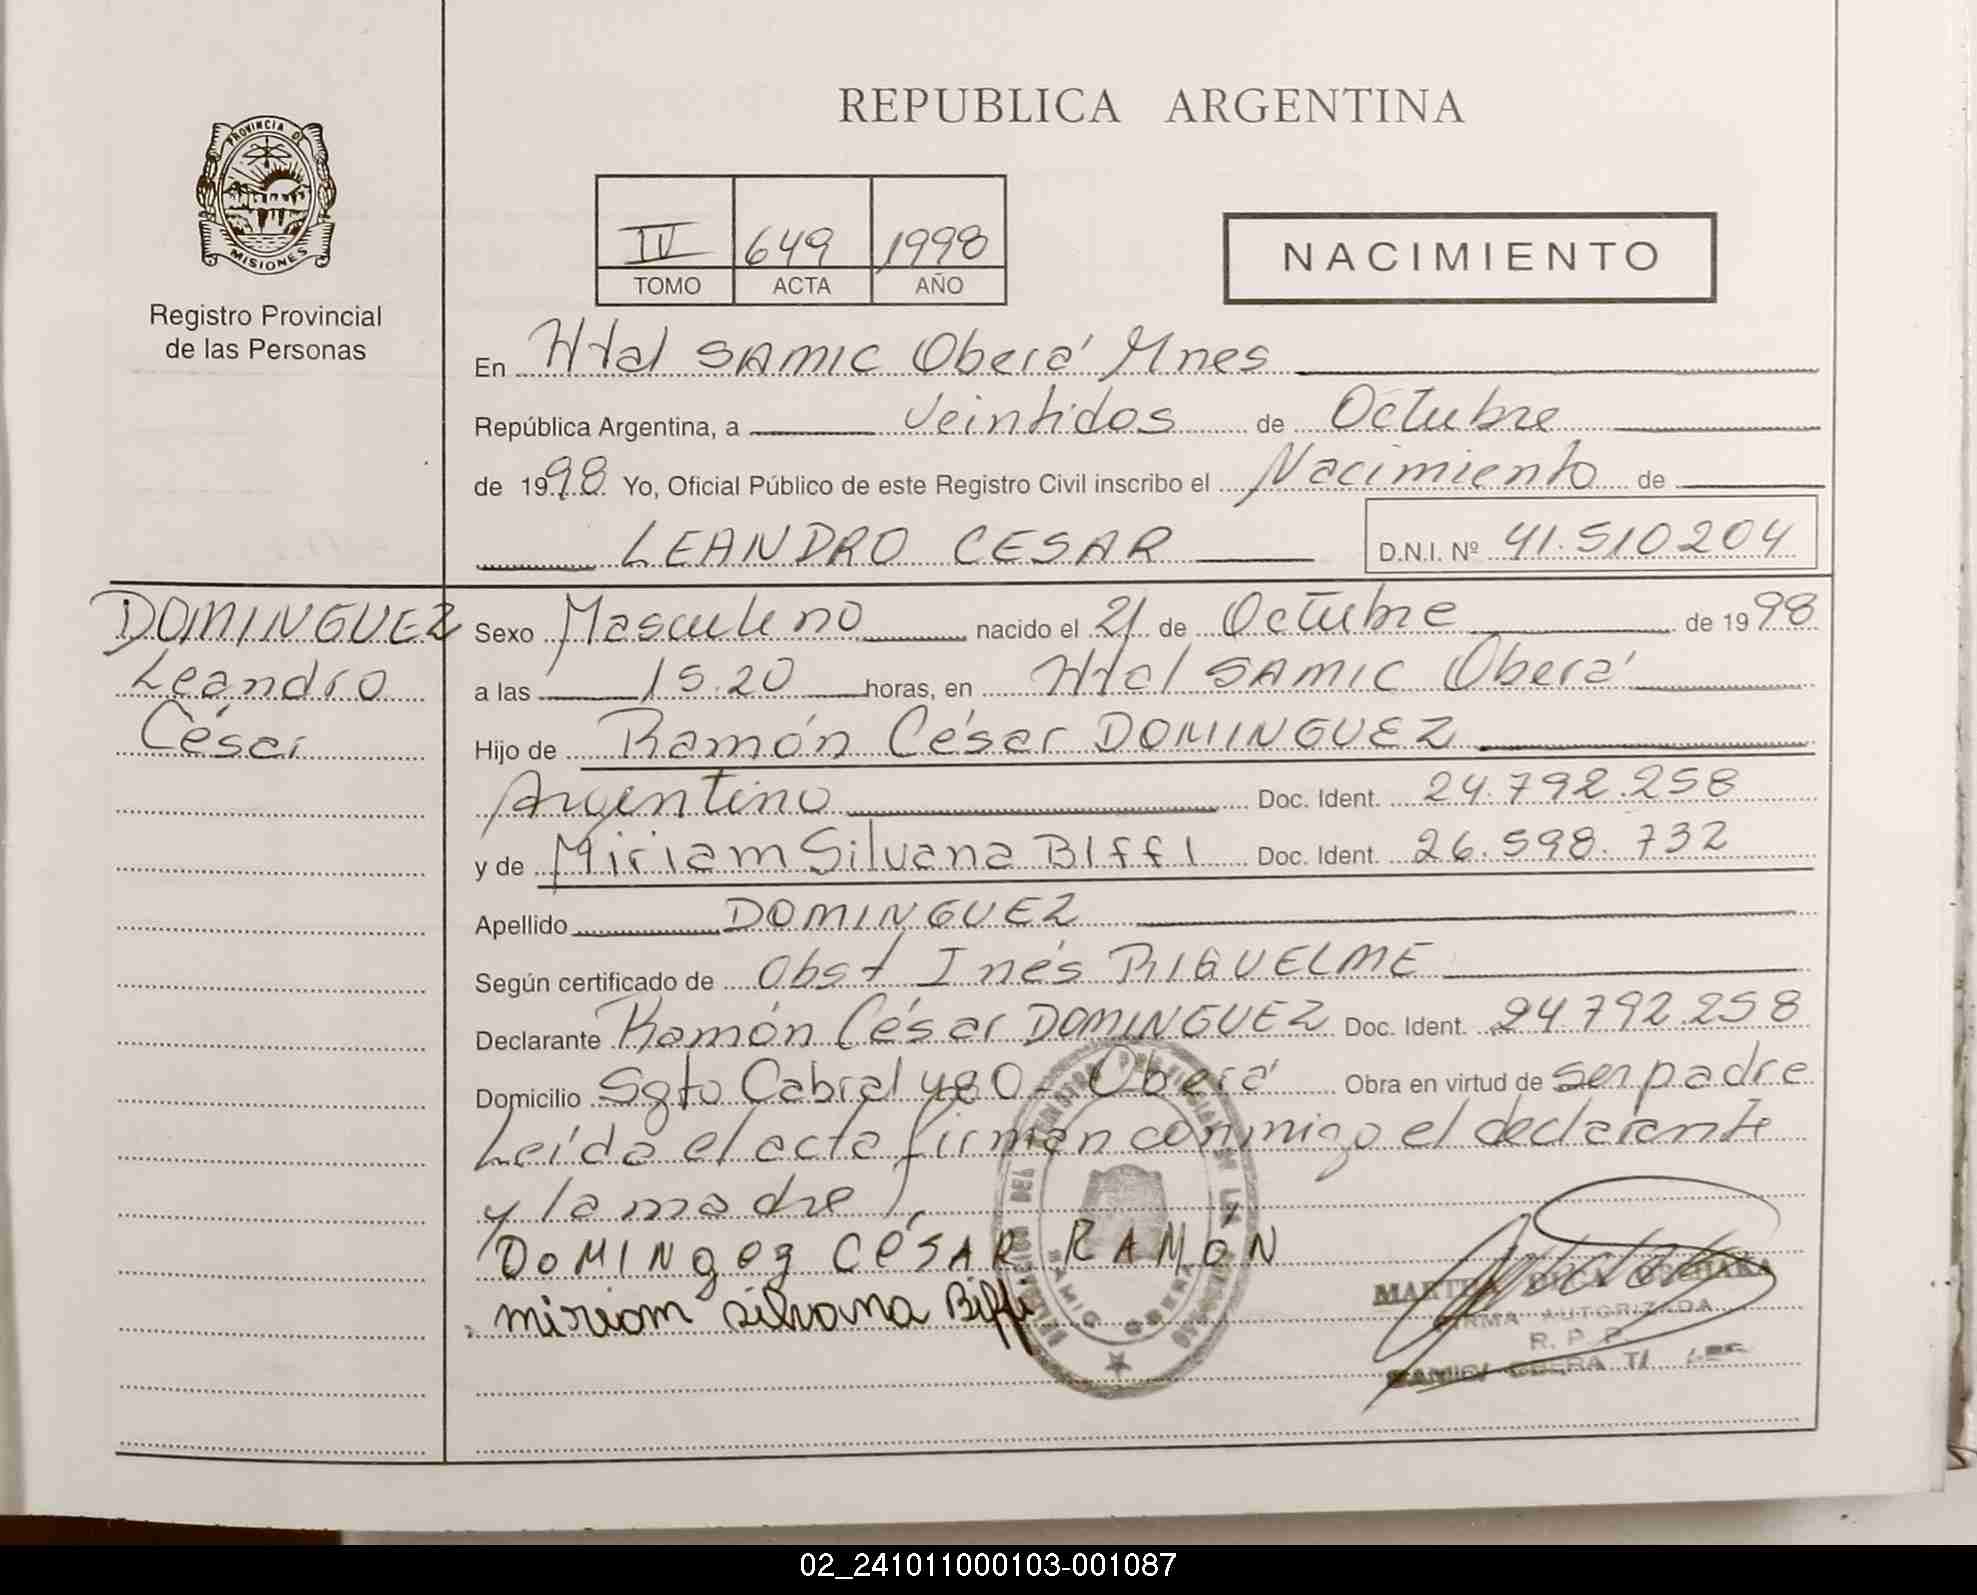 REPUBLICA ARGENTINA
PROVINCIA DE
MISIONES
Registro Provincial
de las Personas
IV 649 1998
TOMO ACTA AÑO
NACIMIENTO
En Htal SAMIC Oberá Mnes
República Argentina, a veintidos de Octubre
de 1998 Yo, Oficial Público de este Registro Civil inscribo el Nacimiento de
LEANDRO CESAR D.N.I. Nº 41.510204
DOMINGUEZ
Leandro
César
Sexo Masculino nacido el 21 de Octubre de 1998
a las 15.20 horas, en Htal SAMIC Oberá
Hijo de Ramón César DOMINGUEZ
Argentino Doc. Ident. 24.792.258
y de Miriam Silvana BIffI Doc. Ident. 26.598.732
Apellido DOMINGUEZ
Según certificado de Obst Inés RIGUELME
Declarante Ramón César DOMINGUEZ Doc. Ident. 24792258
Domicilio Sgto Cabral 480 - Oberá Obra en virtud de ser padre
Leída el acta firman conmigo el declarante
y la madre
DOMINgez CéSAR RAMÓN
miriam silvana Biffi
FIRMA AUTORIZADA
R. P. P.
02_241011000103-001087